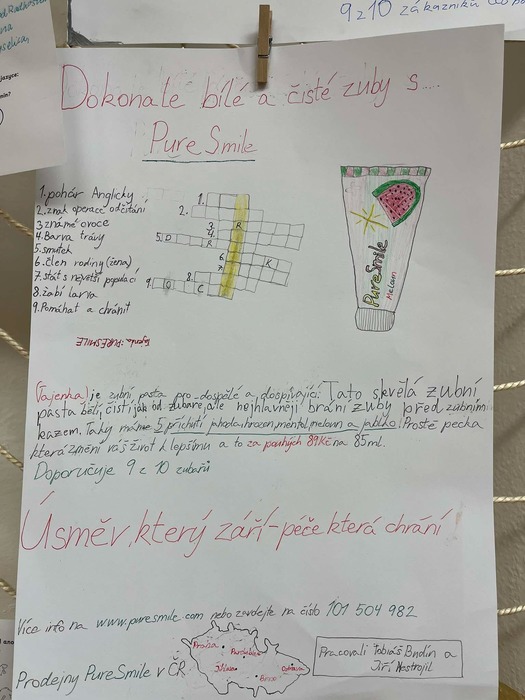 9 z 10 zákazníků
Dokonale bílé a čisté zuby s....
Pure Smile
1. pohár Anglicky
2. znak operace odčítání
3 známé ovoce
4. Barva trávy
5. smutek
6. člen rodiny (žena)
7. stát s největší populací
8. žabí larva
9. Pomáhat a chránit
1.
2.
3.
4.
R
5. D
R
6.
7.
K
8.
9.
O
C
tajenka: PURE SMILE
PureSmile
Meloun
(Tajenka) je zubní pasta pro dospělé a dospívající. Tato skvělá zubní
pasta bělí, čistí jak od zubaře, ale nejhlavněji brání zuby před zubním
kazem. Taky máme 5 příchutí jahoda, hrozen, mentol, meloun a jablko! Prostě pecka
která změní váš život k lepšímu a to za pouhých 89Kč na 85ml.
Doporučuje 9 z 10 zubařů
Úsměv, který září-péče která chrání!
Více info na www.puresmile.com nebo zavolejte na číslo 101 504 982
Prodejny PureSmile v ČR
Praha
Pardubice
Jihlava
Brno
Ostrava
Pracovali Tobiáš Bndín a
Jiří Nastrojil